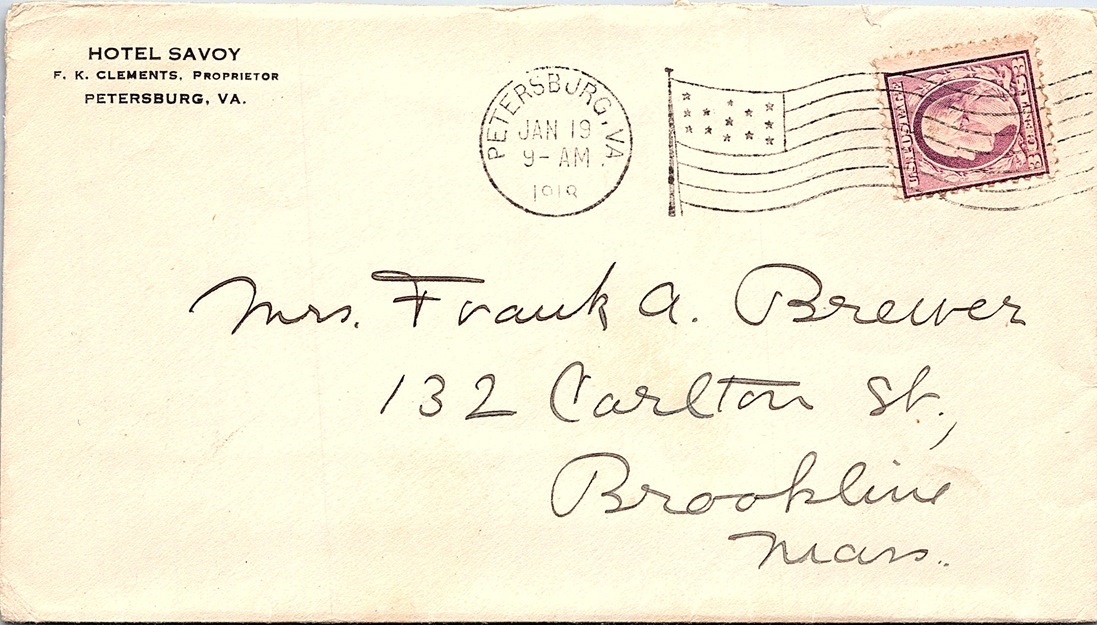 HOTEL SAVOY
F. K. CLEMENTS, PROPRIETOR
PETERSBURG, VA.
PETERSBURG, VA.
JAN 19
9-AM
1918
U.S. POSTAGE
3 CENTS 3
Mrs. Frank A. Brewer
132 Carlton St.,
Brookline
Mass.